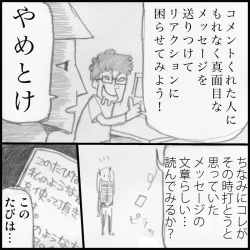 コメントくれた人に
もれなく真面目な
メッセージを
送りつけて
リアクションに
困らせてみよう！
やめとけ
ちなみにコレが
その時打とうと
思っていた
メッセージの
文章らしい…
読んでみるか？
ピラッ
このたび
私のような
を使って頂き
のような
この
たびは…